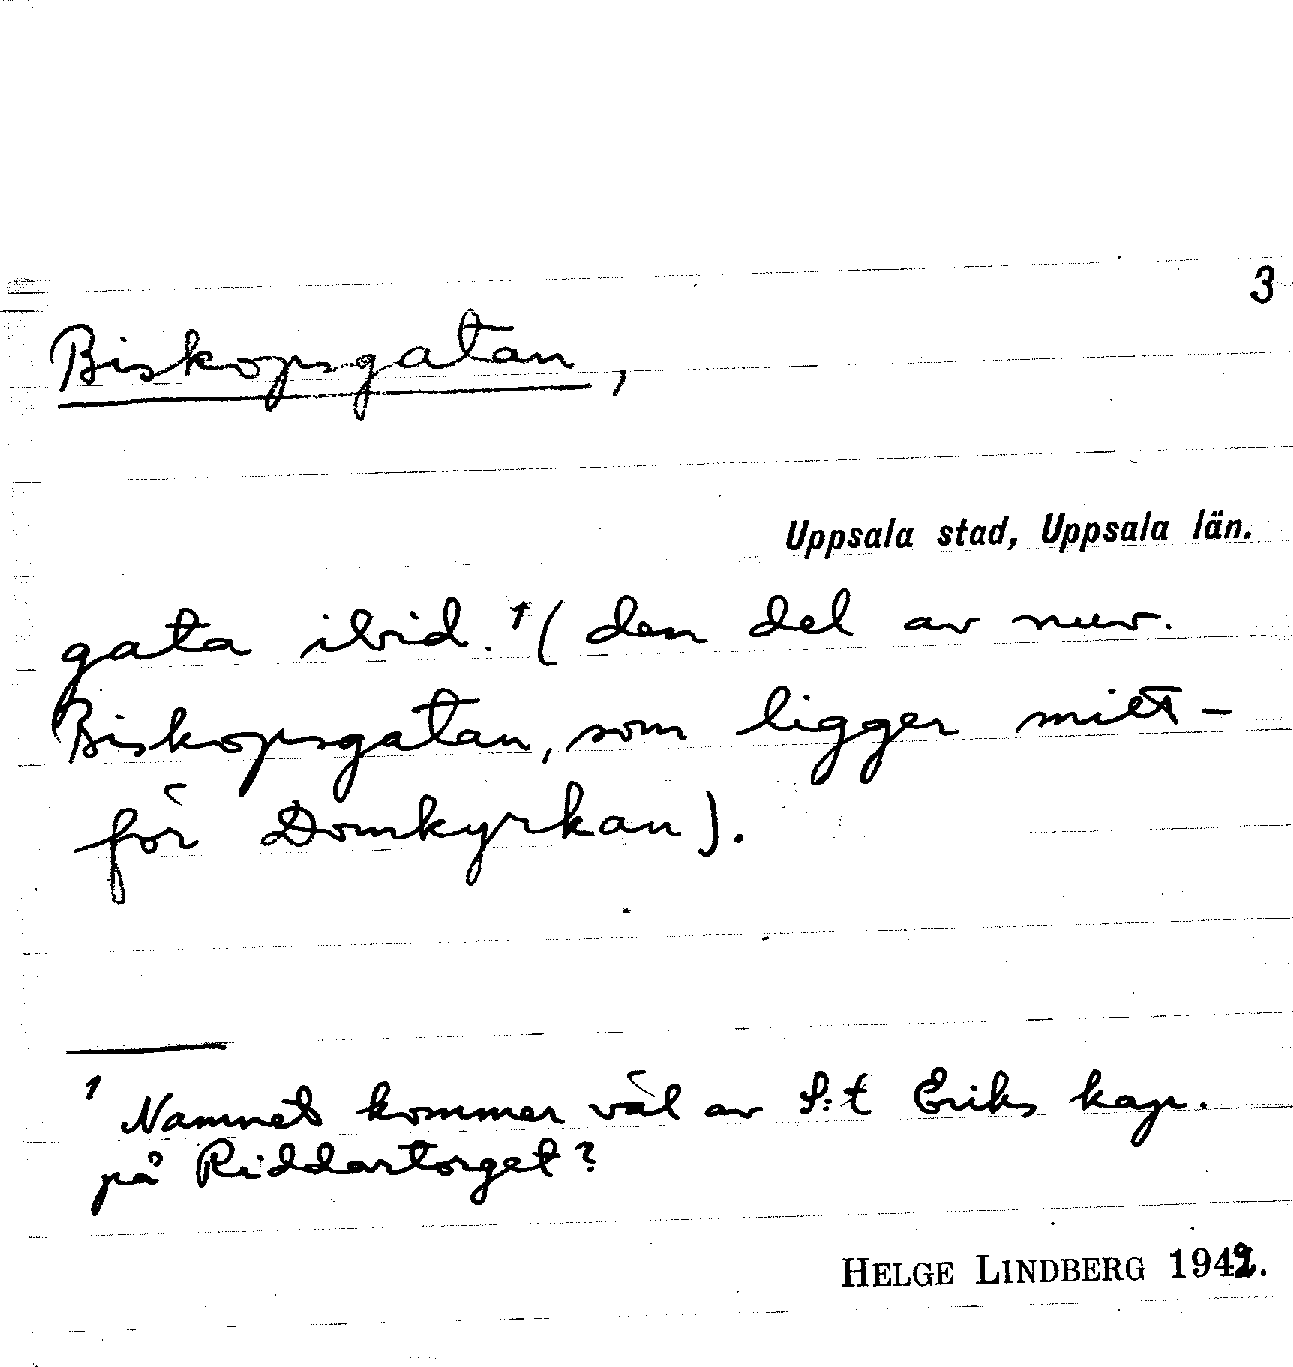 3
Biskopsgatan,
Uppsala stad, Uppsala län.
gata ibid.¹ (den del av nuv.
Biskopsgatan, som ligger mitt-
för Domkyrkan).
¹ Namnet kommer väl av S:t Eriks kap.
på Riddartorget?
HELGE LINDBERG 1942.